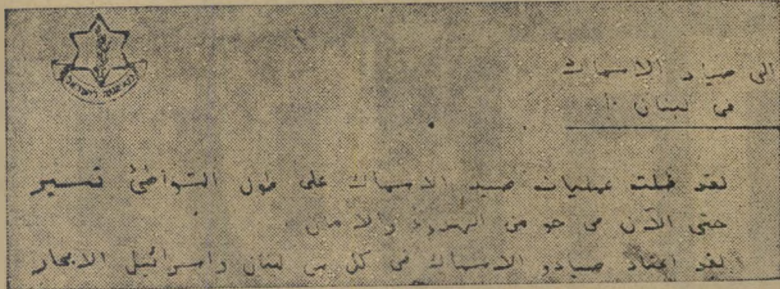 צבא הגנה לישראל
الى صياد الاسماك
في لبنان
لقد ظلت عمليات صيد الاسماك على طول الشواطئ تسير
حتى الآن في جو من الهدوء والامان
لقد اعتاد صيادو الاسماك في كل من لبنان واسرائيل الابحار